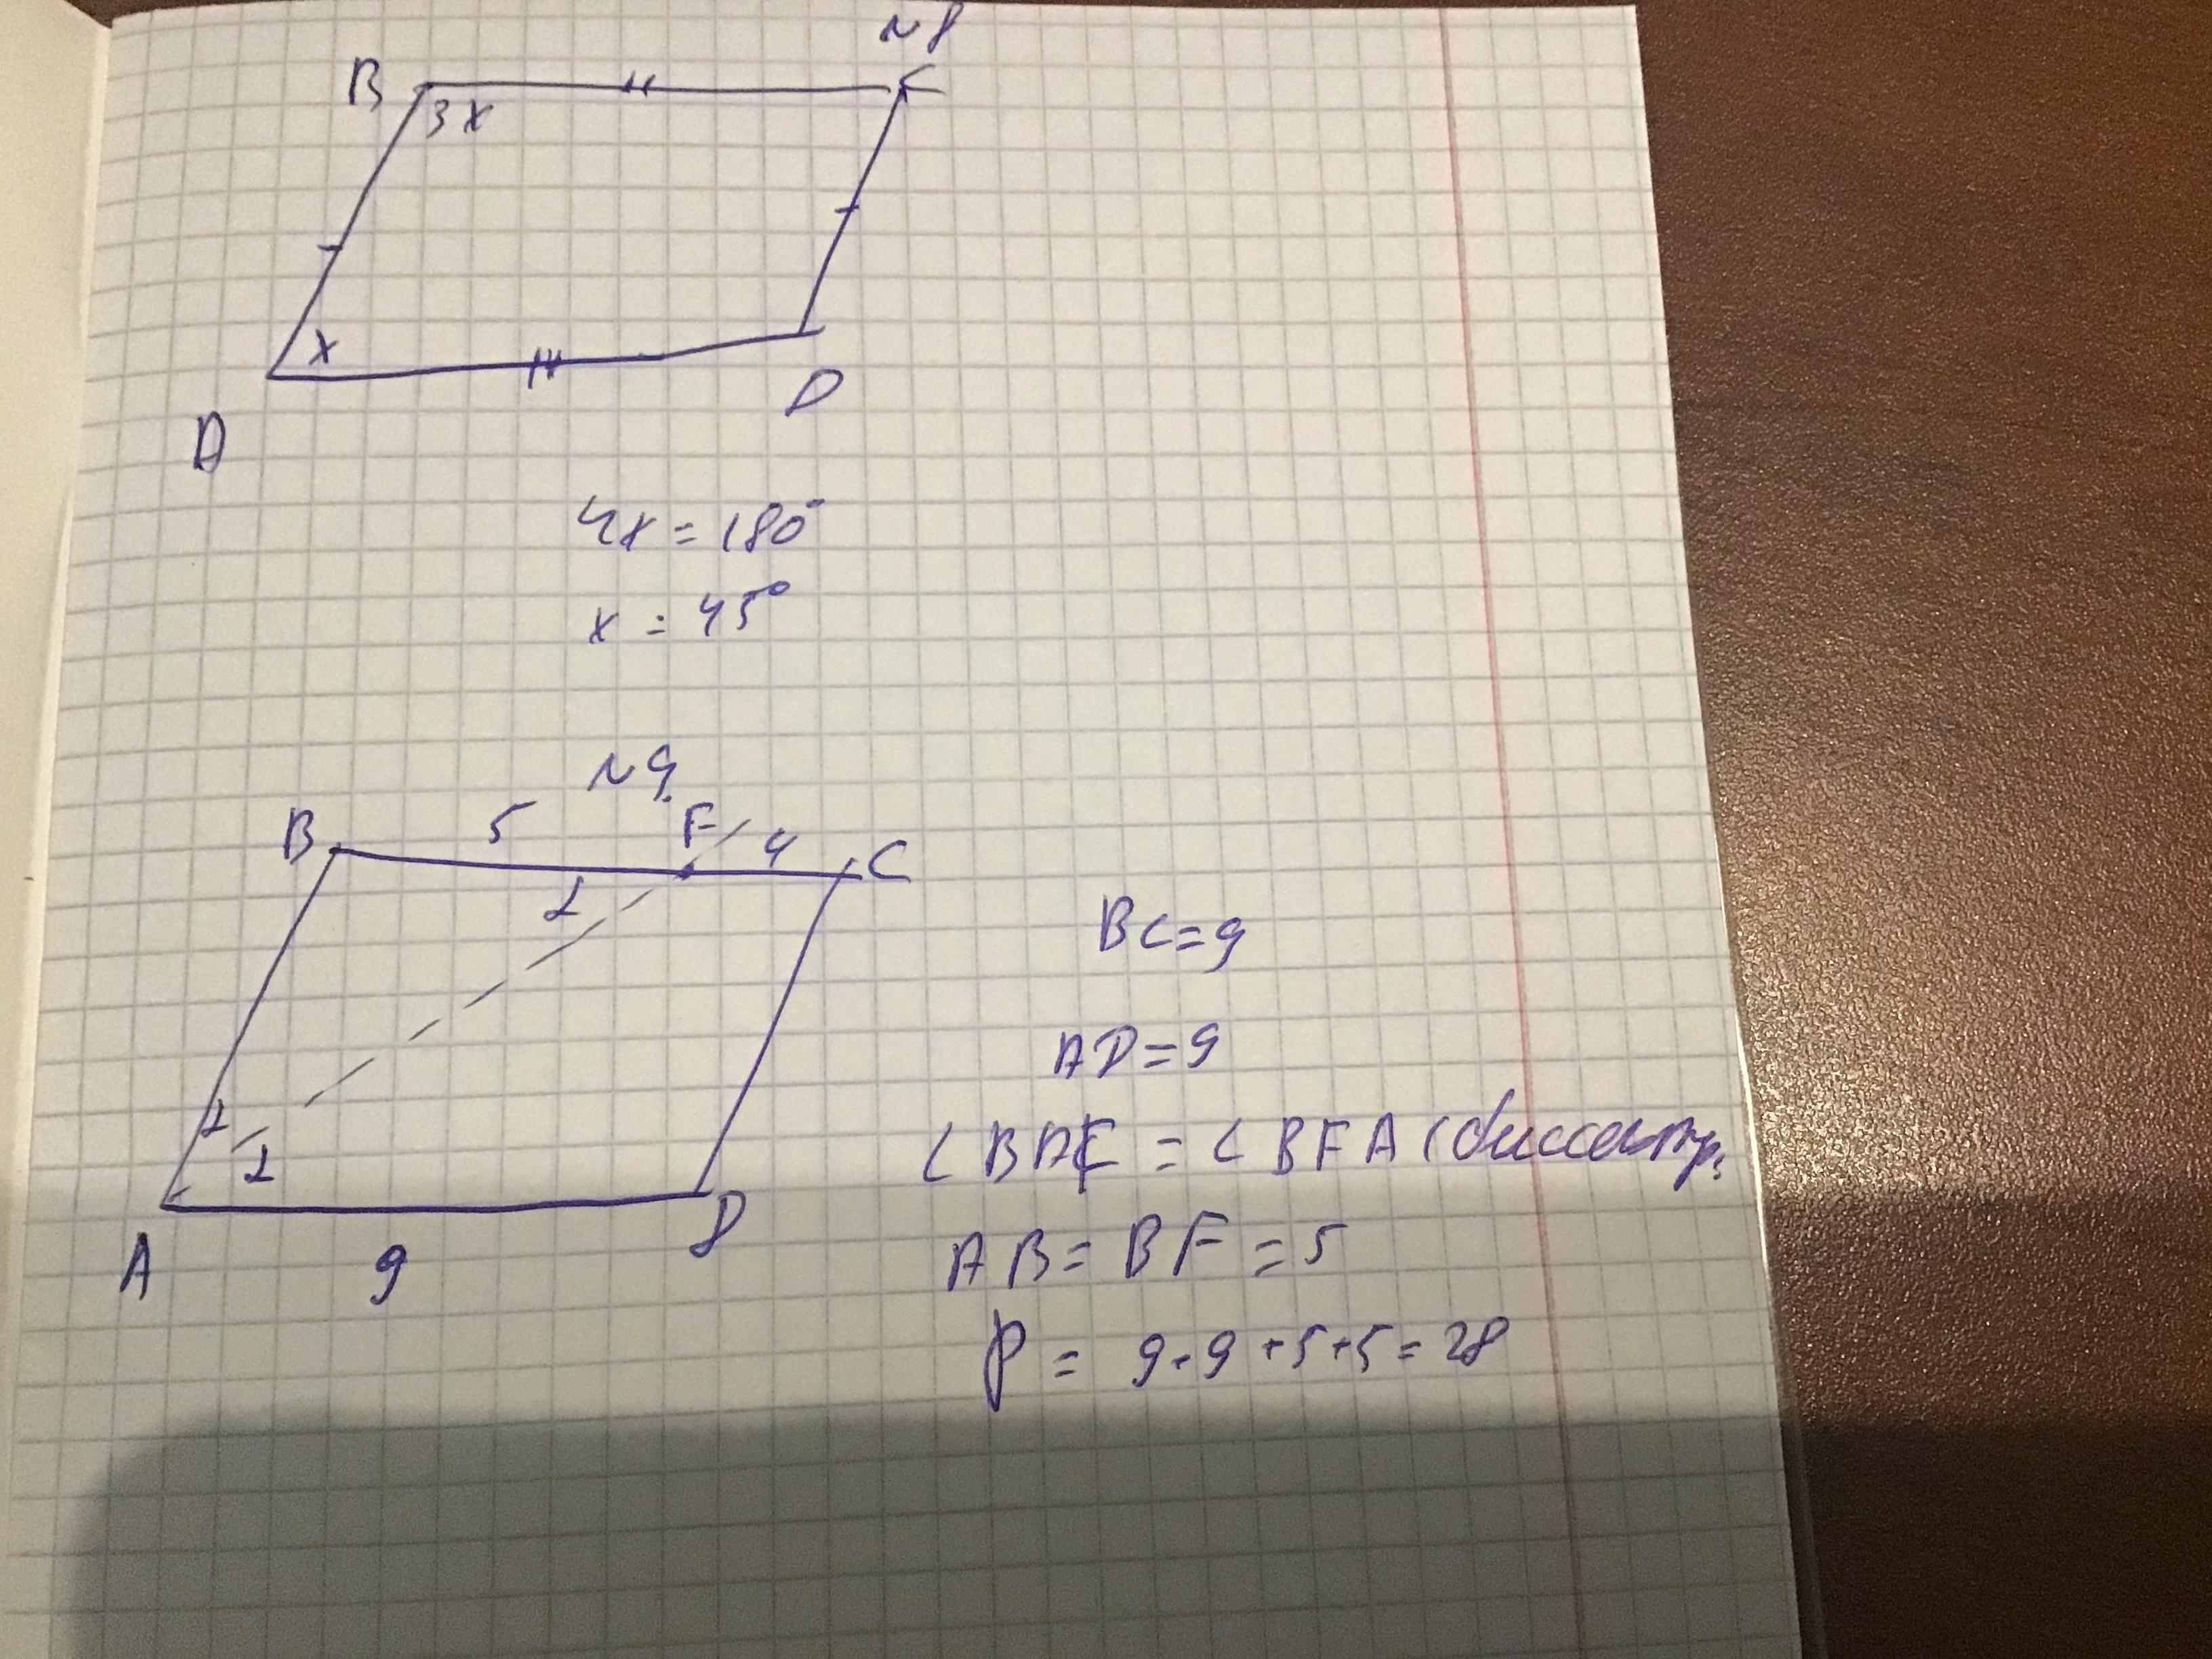 N8
B C
3x
x
A D
4x = 180°
x = 45°
N9
B 5 F 4 C
1
1
1
A 9 D
BC = 9
AD = 9
∠BAF = ∠BFA (биссектр.
AB = BF = 5
P = 9+9+5+5 = 28